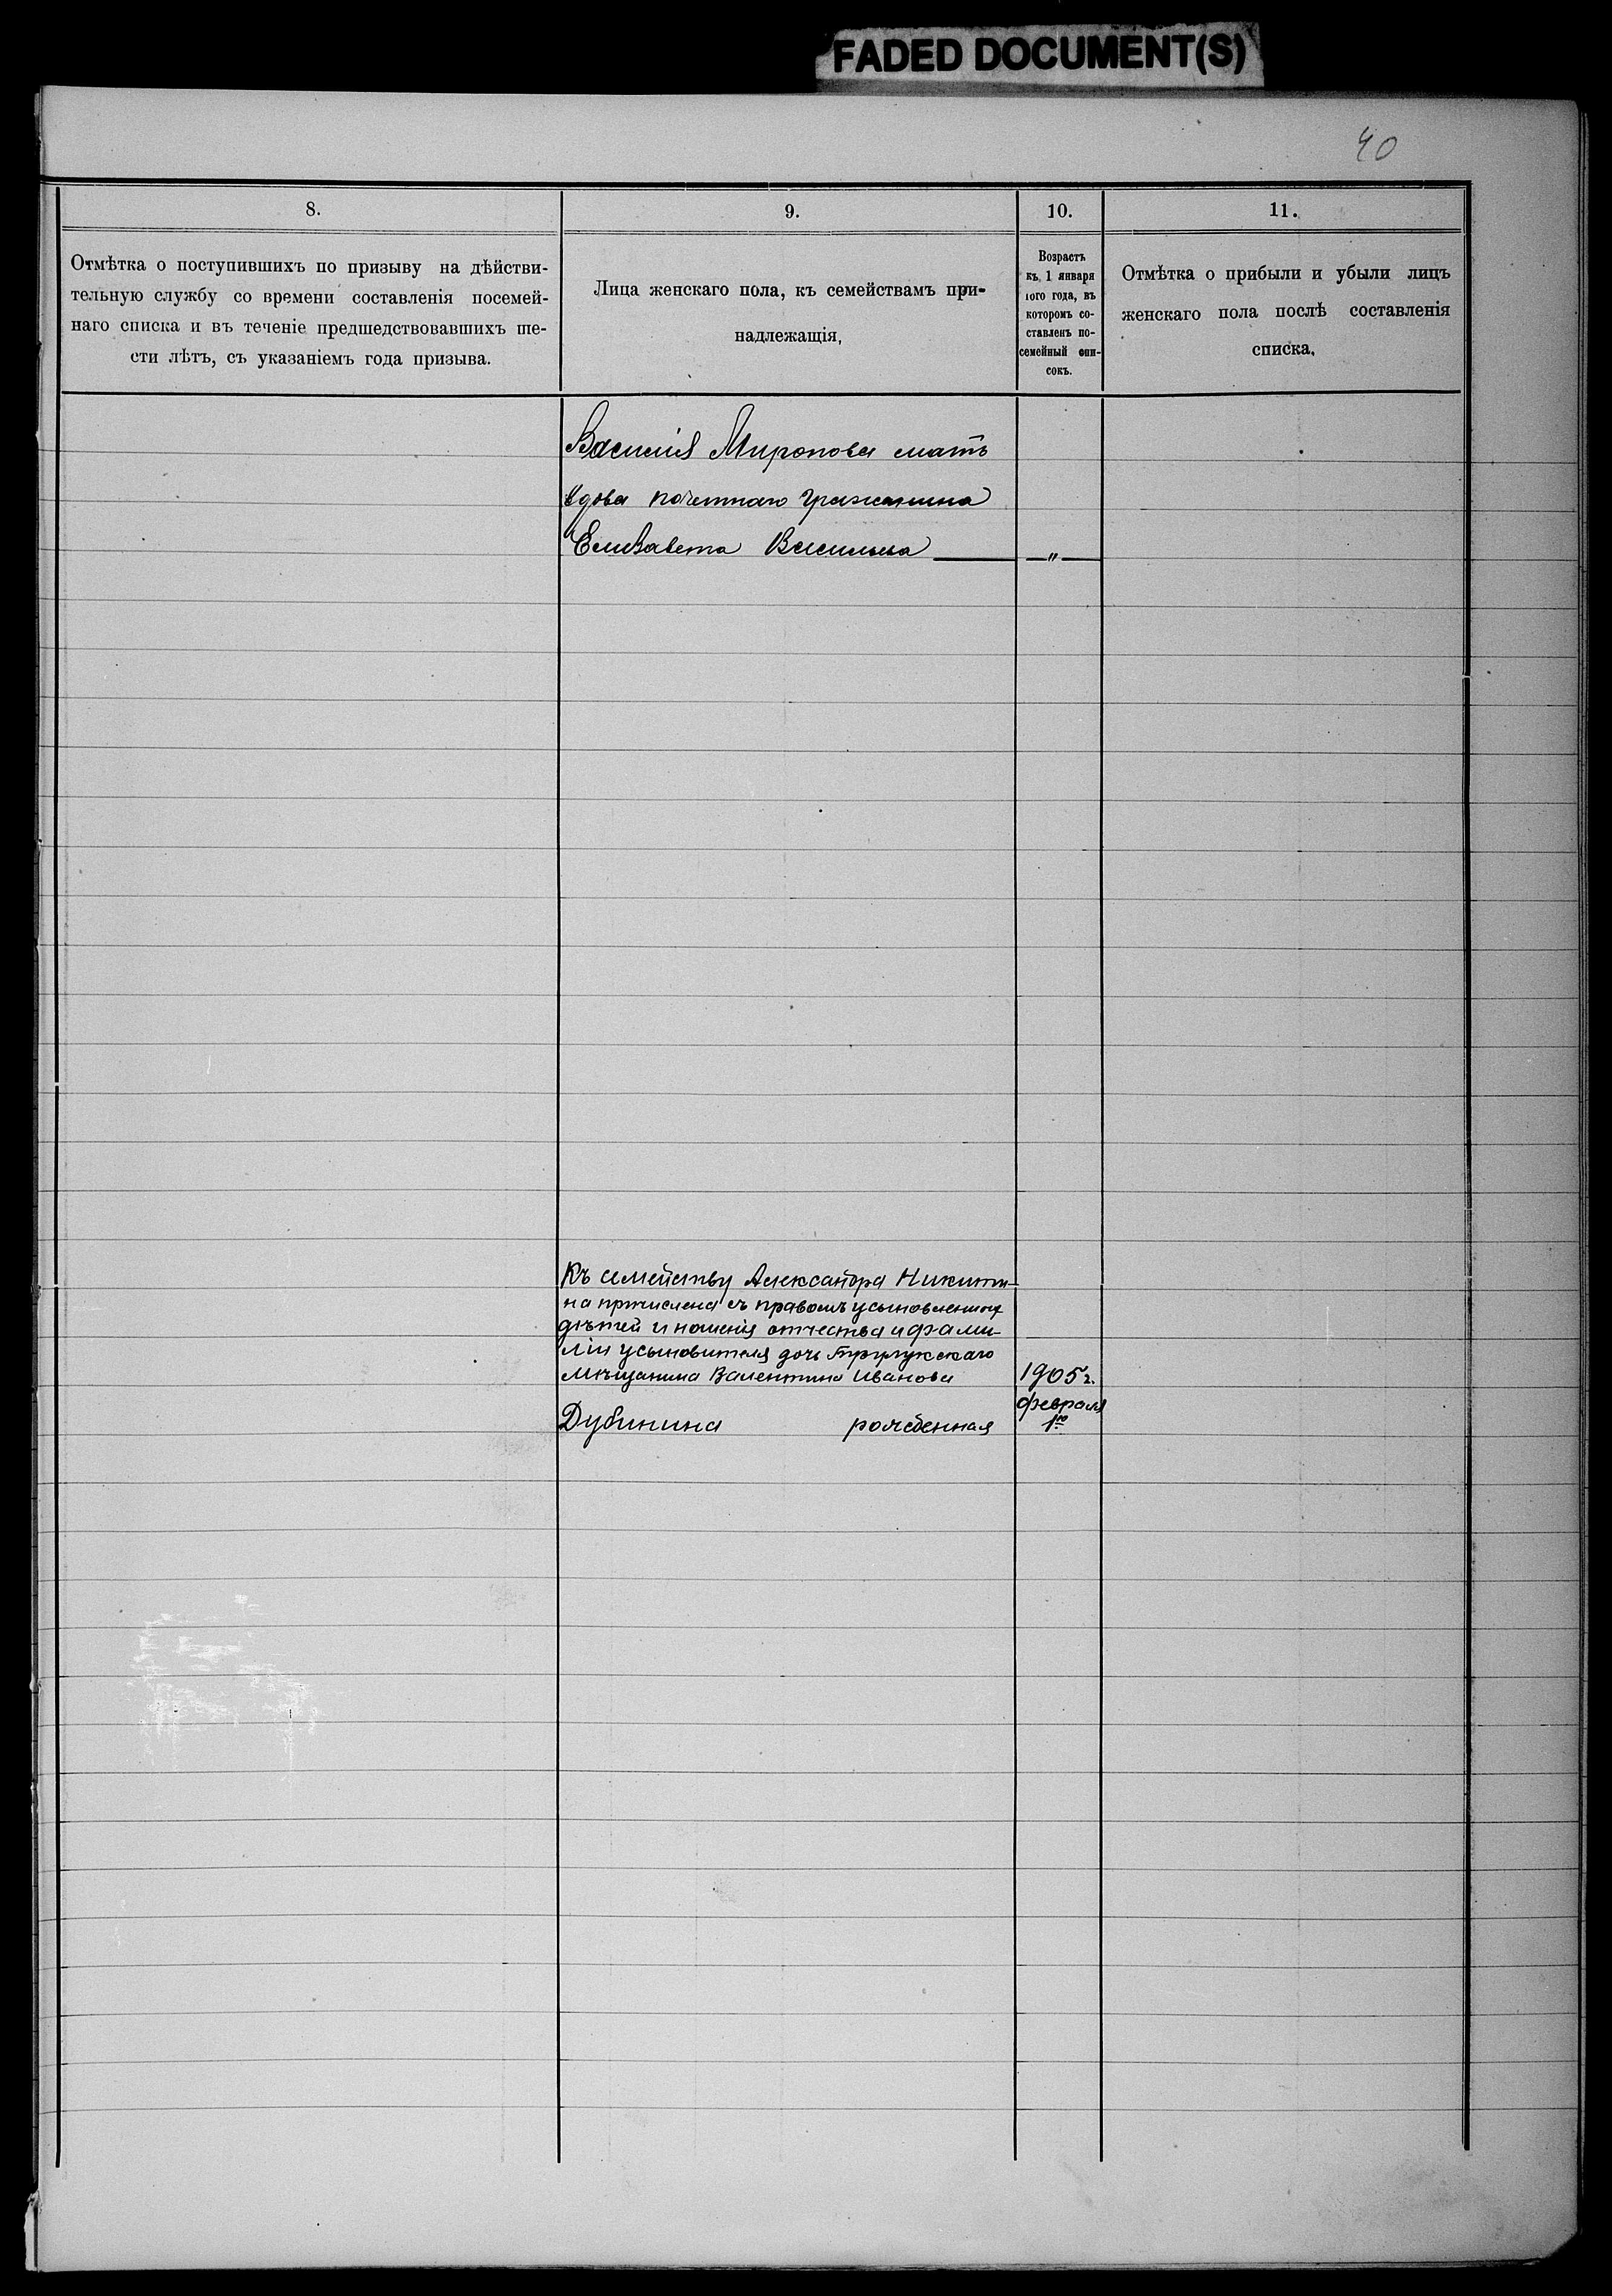 FADED DOCUMENT(S)
40
8.
Отмѣтка о поступившихъ по призыву на дѣйстви-
тельную службу со времени составленія посемей-
наго списка и въ теченіе предшедствовавшихъ ше-
сти лѣтъ, съ указаніемъ года призыва.
9.
Лица женскаго пола, къ семействамъ при-
надлежащія,
10.
Возрастъ
къ 1 января
того года, въ
которомъ со-
ставленъ по-
семейный спи-
сокъ.
11.
Отмѣтка о прибыли и убыли лицъ
женскаго пола послѣ составленія
списка.
Василія Миронова мать
вдова почетнаго гражанина
Елизавета Васильева
— „ —
Къ семейству Александра Никити-
на причислена съ правомъ усыновленныхъ
дѣтей и ношенія отчества и фами-
ліи усыновителя дочь
мѣщанина Валентина Иванова
Дубинина рожденная
1905 г.
февраля
1го